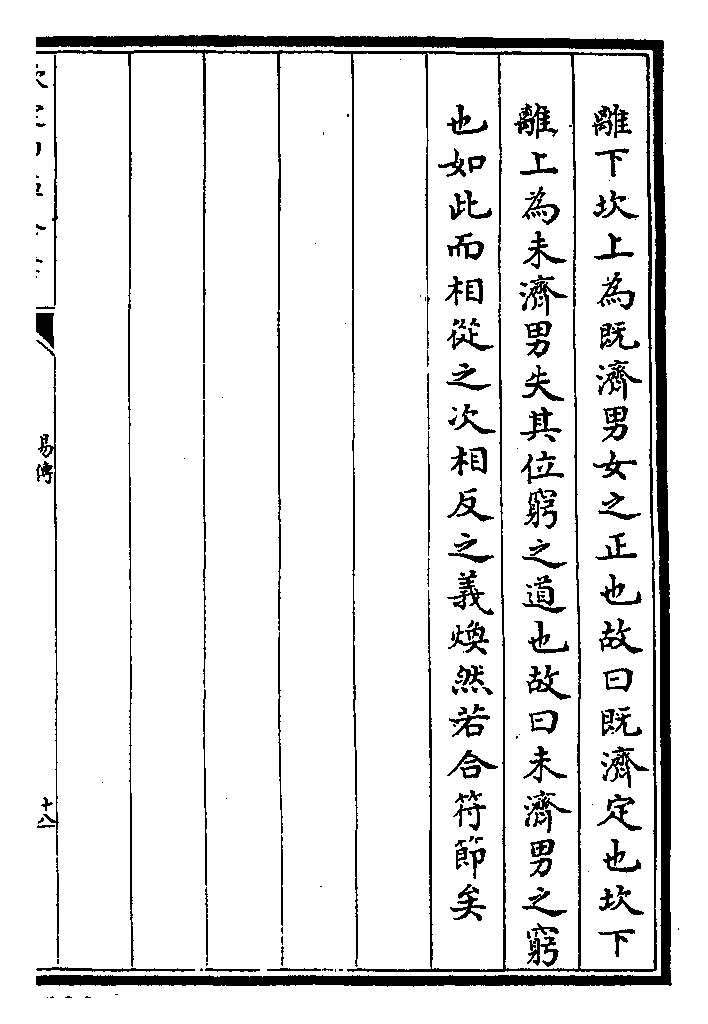 離下坎上為既濟男女之正也故曰既濟定也坎下
離上為未濟男失其位窮之道也故曰未濟男之窮
也如此而相從之次相反之義煥然若合符節矣
易傳
十八